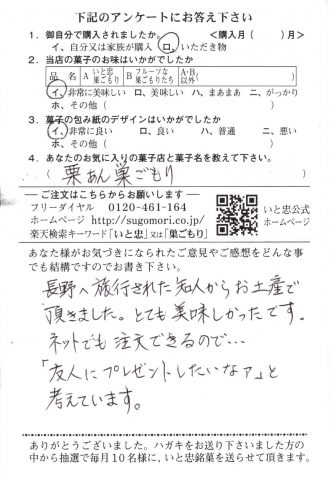 下記のアンケートにお答え下さい
1．御自分で購入されましたか。 ＜購入月（　　）月＞
イ、自分又は家族が購入　ロ、いただき物
2．当店の菓子のお味はいかがでしたか
品名 A いと忠巣ごもり B フルーツな巣ごもりたち A・B以外（　　）
イ、非常に美味しい　ロ、美味しい　ハ、まあまあ　ニ、がっかり
ホ、その他（　　）
3．菓子の包み紙のデザインはいかがですか
イ、非常に良い　ロ、良い　ハ、普通　ニ、悪い
ホ、その他（　　）
4．あなたのお気に入りの菓子店と菓子名を教えて下さい。
栗あん巣ごもり
―ご注文はこちらからお願いします―
フリーダイヤル　0120-461-164
ホームページ　http://sugomori.co.jp/
楽天検索キーワード「いと忠」又は「巣ごもり」
いと忠公式
ホームページ
あなた様がお気づきになられたご意見やご感想をどんな事
でも結構ですのでお書き下さい。
長野へ旅行された知人からお土産で
頂きました。とても美味しかったです。
ネットでも注文できるので…
「友人にプレゼントしたいなァ」と
考えています。
ありがとうございました。ハガキをお送り下さいました方の
中から抽選で毎月10名様に、いと忠銘菓を送らせて頂きます。